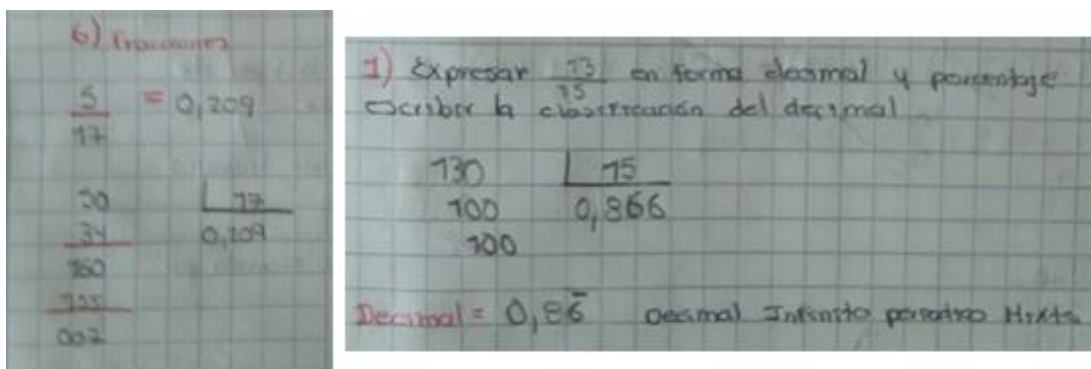 6) Fracciones
5 = 0,209
17
50 17
34 0,209
160
155
007
1) Expresar 13 en forma decimal y porcentaje
15
escribir la clasificación del decimal
130 15
100 0,866
100
Decimal = 0,86 Decimal Infinito periodico Mixto